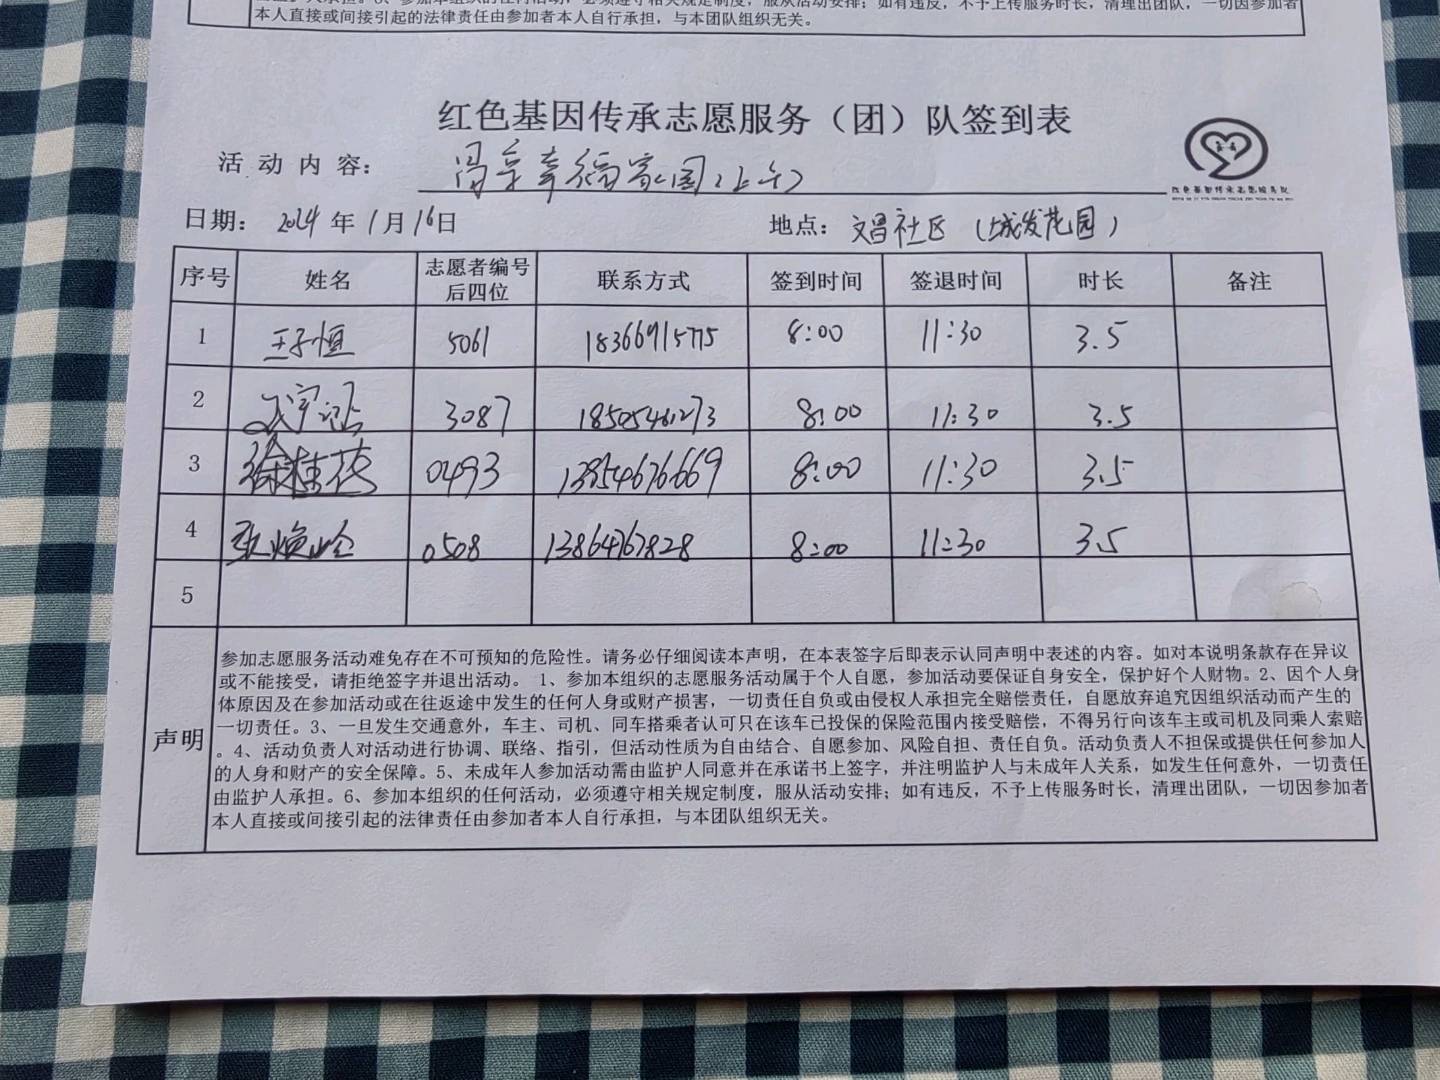 本人直接或间接引起的法律责任由参加者本人自行承担，与本团队组织无关。
红色基因传承志愿服务（团）队签到表
活动内容： 幸福家园（上午）
红色基因传承志愿服务队
日期： 2024年1月16日 地点： 文昌社区（城发花园）
序号 姓名 志愿者编号后四位 联系方式 签到时间 签退时间 时长 备注
1 王子恒 5061 18366915775 8:00 11:30 3.5
2 3087 18505461273 8:00 11:30 3.5
3 徐桂花 0493 13854676669 8:00 11:30 3.5
4 0508 13864767828 8:00 11:30 3.5
5
声明
参加志愿服务活动难免存在不可预知的危险性。请务必仔细阅读本声明，在本表签字后即表示认同声明中表述的内容。如对本说明条款存在异议
或不能接受，请拒绝签字并退出活动。 1、参加本组织的志愿服务活动属于个人自愿，参加活动要保证自身安全，保护好个人财物。2、因个人身
体原因及在参加活动或在往返途中发生的任何人身或财产损害，一切责任自负或由侵权人承担完全赔偿责任，自愿放弃追究因组织活动而产生的
一切责任。3、一旦发生交通意外，车主、司机、同车搭乘者认可只在该车已投保的保险范围内接受赔偿，不得另行向该车主或司机及同乘人索赔
。4、活动负责人对活动进行协调、联络、指引，但活动性质为自由结合、自愿参加、风险自担、责任自负。活动负责人不担保或提供任何参加人
的人身和财产的安全保障。5、未成年人参加活动需由监护人同意并在承诺书上签字，并注明监护人与未成年人关系，如发生任何意外，一切责任
由监护人承担。6、参加本组织的任何活动，必须遵守相关规定制度，服从活动安排；如有违反，不予上传服务时长，清理出团队，一切因参加者
本人直接或间接引起的法律责任由参加者本人自行承担，与本团队组织无关。